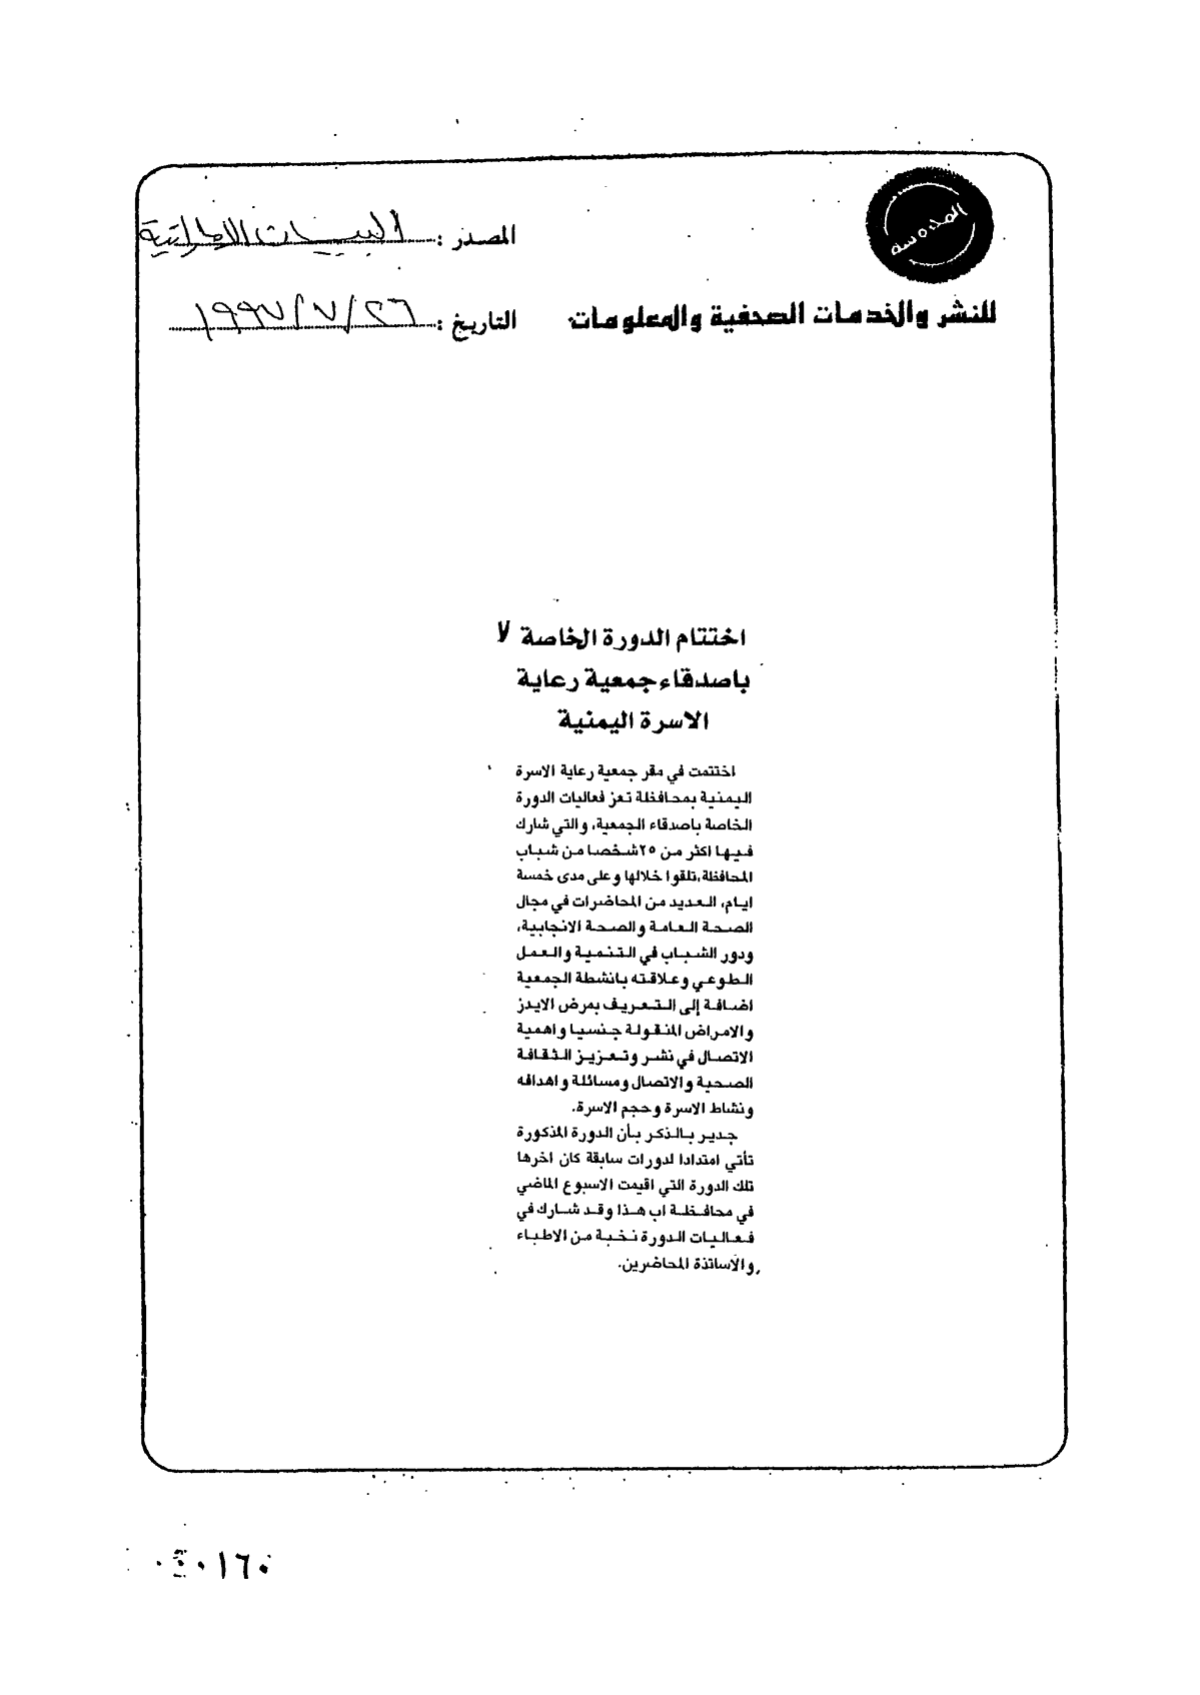 المصدر : البيان الإماراتية
للنشر والخدمات الصحفية والمعلومات
التاريخ : ٢٦ / ٧ / ١٩٩٧
اختتام الدورة الخاصة
باصدقاء جمعية رعاية
الاسرة اليمنية
اختتمت في مقر جمعية رعاية الاسرة
اليمنية بمحافظة تعز فعاليات الدورة
الخاصة باصدقاء الجمعية، والتي شارك
فيها اكثر من ٢٥ شخصا من شباب
المحافظة، تلقوا خلالها وعلى مدى خمسة
ايام، العديد من المحاضرات في مجال
الصحة العامة والصحة الانجابية،
ودور الشباب في التنمية والعمل
الطوعي وعلاقته بانشطة الجمعية
اضافة إلى التعريف بمرض الايدز
والامراض المنقولة جنسيا واهمية
الاتصال في نشر وتعزيز الثقافة
الصحية والاتصال ومسائلة واهدافه
ونشاط الاسرة وحجم الاسرة.
جدير بالذكر بأن الدورة المذكورة
تأتي امتدادا لدورات سابقة كان اخرها
تلك الدورة التي اقيمت الاسبوع الماضي
في محافظة اب هذا وقد شارك في
فعاليات الدورة نخبة من الاطباء
والأساتذة المحاضرين.